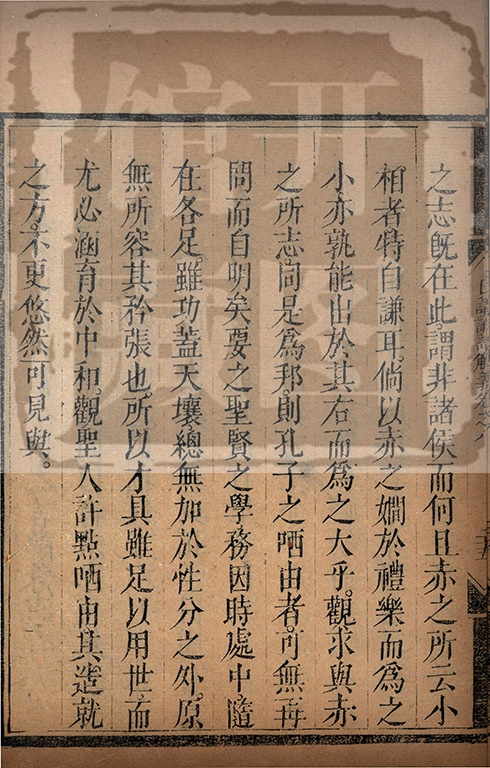 之志旣在此謂非諸侯而何且赤之所云小
相者特自謙耳。倘以赤之嫺於禮樂而爲之
小亦孰能出於其右而爲之大乎。觀求與赤
之所志。同是爲邦。則孔子之哂由者。可無再
問而自明矣。要之聖賢之學務因時處中。隨
在各足。雖功蓋天壤總無加於性分之外。原
無所容其矜張也。所以才具雖足以用世而
尤必涵育於中和。觀聖人許點哂由。其造就
之方。不更悠然可見與。